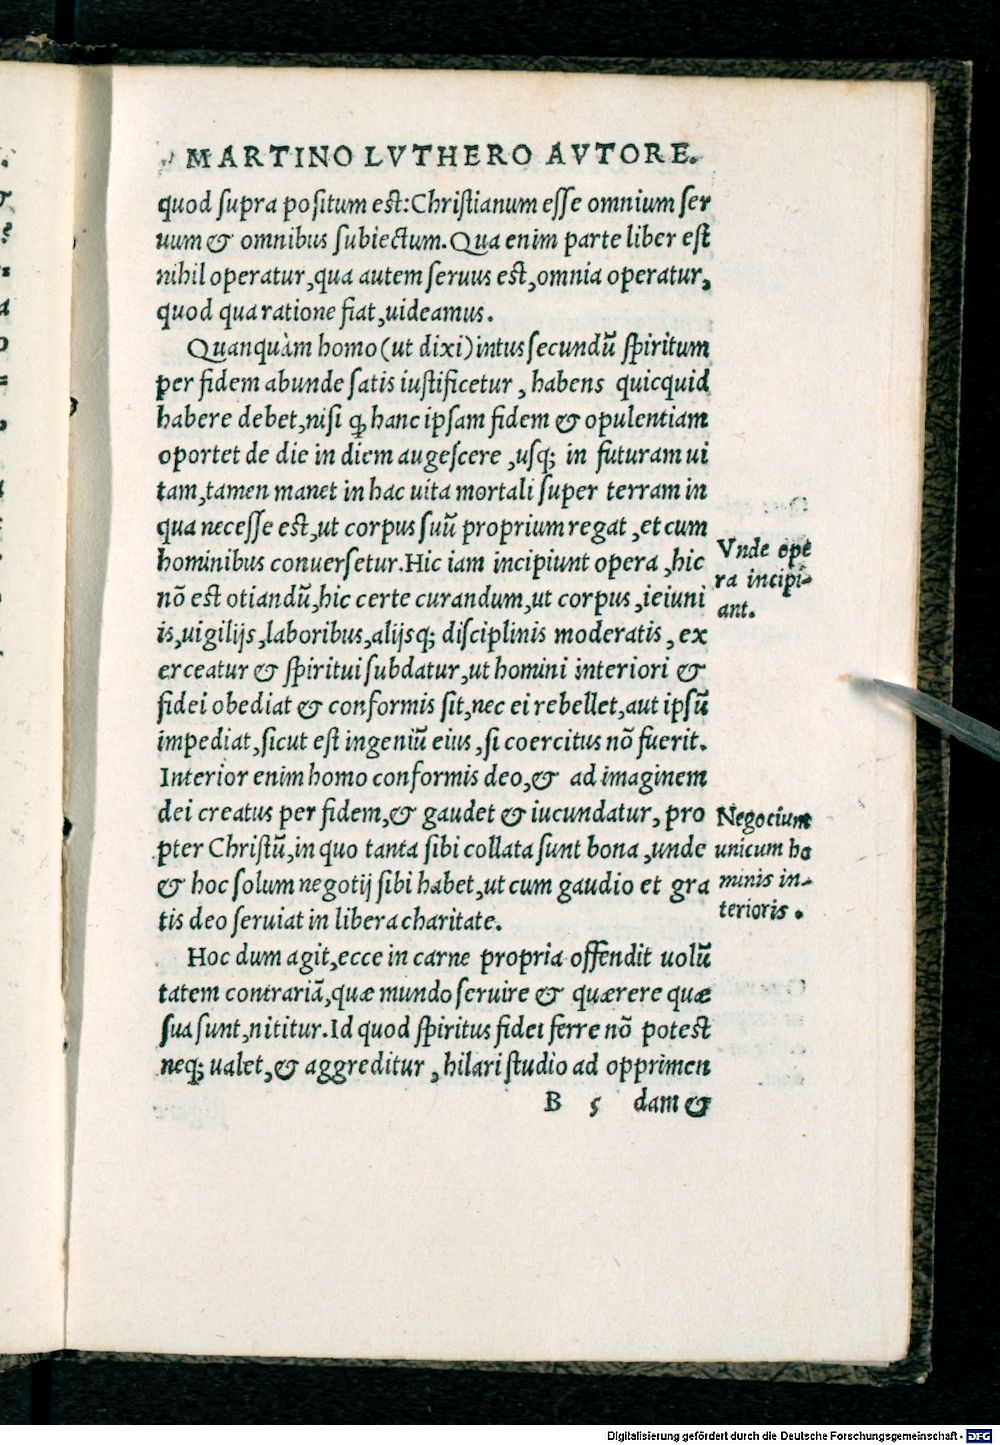 MARTINO LVTHERO AVTORE.
quod supra positum est:Christianum esse omnium ser
uum & omnibus subiectum.Qua enim parte liber est
nihil operatur,qua autem seruus est,omnia operatur,
quod qua ratione fiat,uideamus.
Quanquàm homo(ut dixi)intus secundũ spiritum
per fidem abunde satis iustificetur, habens quicquid
habere debet,nisi ꝙ hanc ipsam fidem & opulentiam
oportet de die in diem augescere ,usq; in futuram ui
tam,tamen manet in hac uita mortali super terram in
qua necesse est,ut corpus suũ proprium regat ,et cum
hominibus conuersetur.Hic iam incipiunt opera ,hic
nõ est otiandũ,hic certe curandum,ut corpus ,ieiuni
is,uigilijs,laboribus,alijsq; disciplinis moderatis, ex
erceatur & spiritui subdatur,ut homini interiori &
fidei obediat & conformis sit,nec ei rebellet,aut ipsũ
impediat,sicut est ingeniũ eius ,si coercitus nõ fuerit.
Interior enim homo conformis deo,& ad imaginem
dei creatus per fidem,& gaudet & iucundatur, pro
pter Christũ,in quo tanta sibi collata sunt bona ,unde
& hoc solum negotij sibi habet,ut cum gaudio et gra
tis deo seruiat in libera charitate.
Hoc dum agit,ecce in carne propria offendit uolũ
tatem contrariã,quæ mundo seruire & quærere quæ
sua sunt,nititur.Id quod spiritus fidei ferre nõ potest
neq; ualet,& aggreditur , hilari studio ad opprimen
B 5 dam &
Vnde ope
ra incipi-
ant.
Negocium
unicum ho
minis in-
terioris.
Digitalisierung gefördert durch die Deutsche Forschungsgemeinschaft - DFG